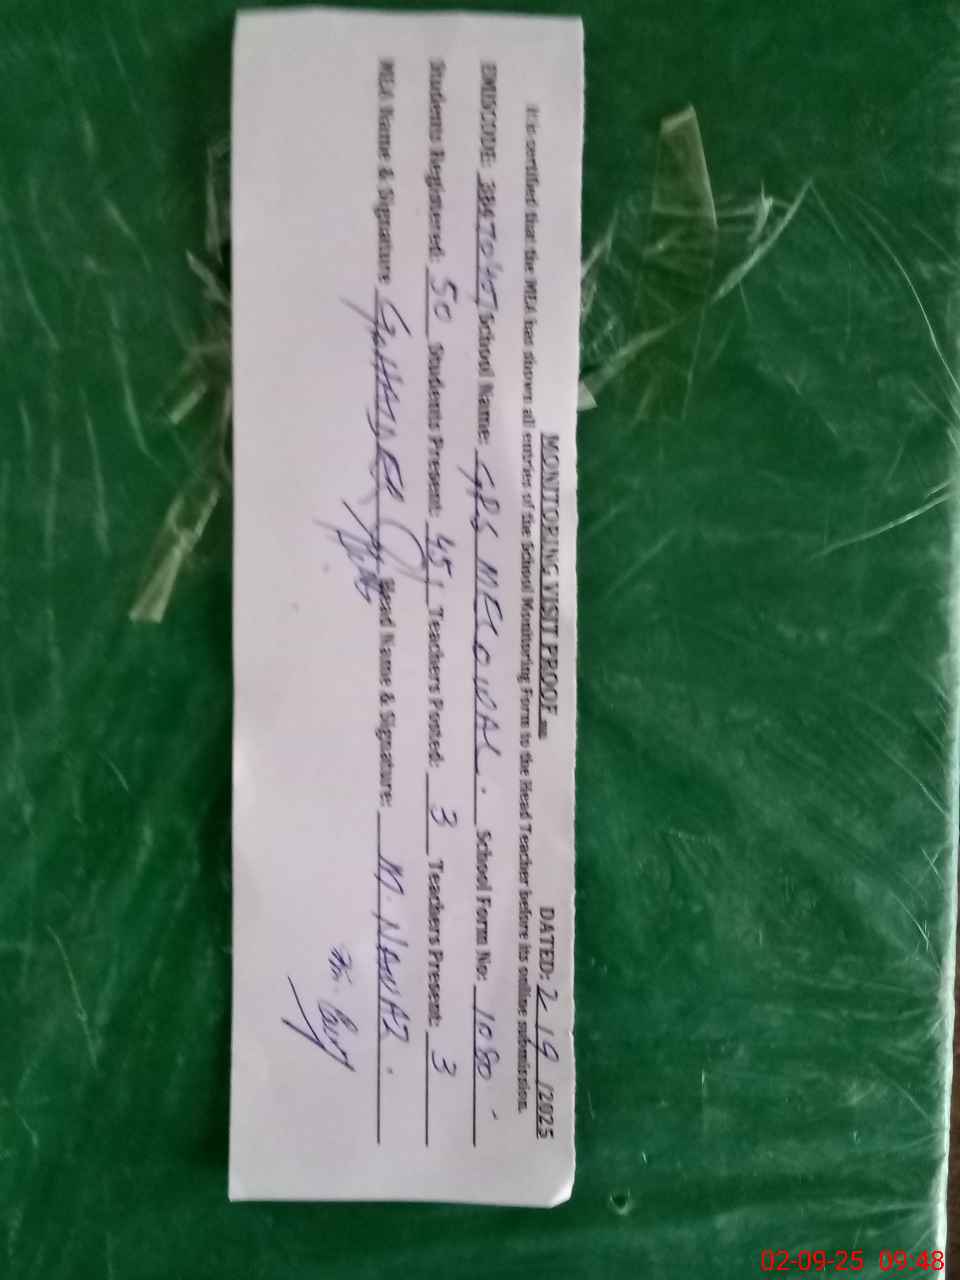 MONITORING VISIT PROOF DATED: 2/9/2025
It is certified that the MEA has shown all entries of the School Monitoring Form to the Head Teacher before its online submission.
EMISCODE: School Name: GPS MELOWAL. School Form No: 1080
Students Registered: 50 Students Present: 45 Teachers Posted: 3 Teachers Present: 3
MEA Name & Signature G. HAIDER Head Name & Signature: M. NAWAZ.
02-09-25 09:48